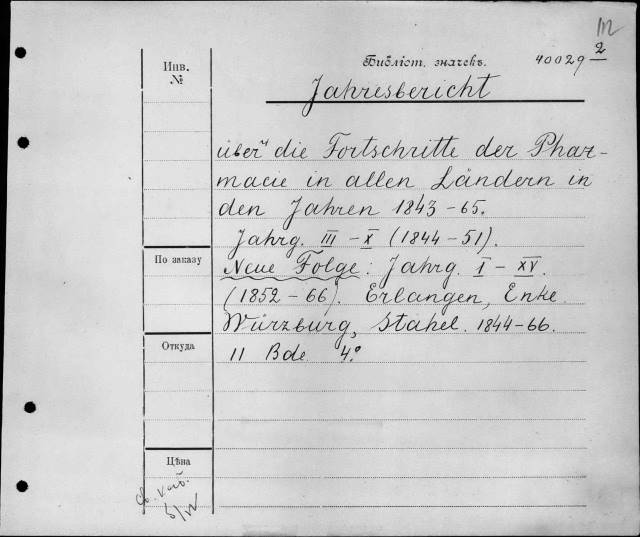 Инв.
№
Библіот. значекъ. 40029 2
Jahresbericht
über die Fortschritte der Phar-
macie in allen Ländern in
den Jahren 1843-65.
Jahrg. III - X (1844-51).
По заказу
Neue Folge: Jahrg. I - XV.
(1852-66). Erlangen, Enke.
Würzburg, Stahel. 1844-66.
Откуда
11 Bde 4°
Цѣна